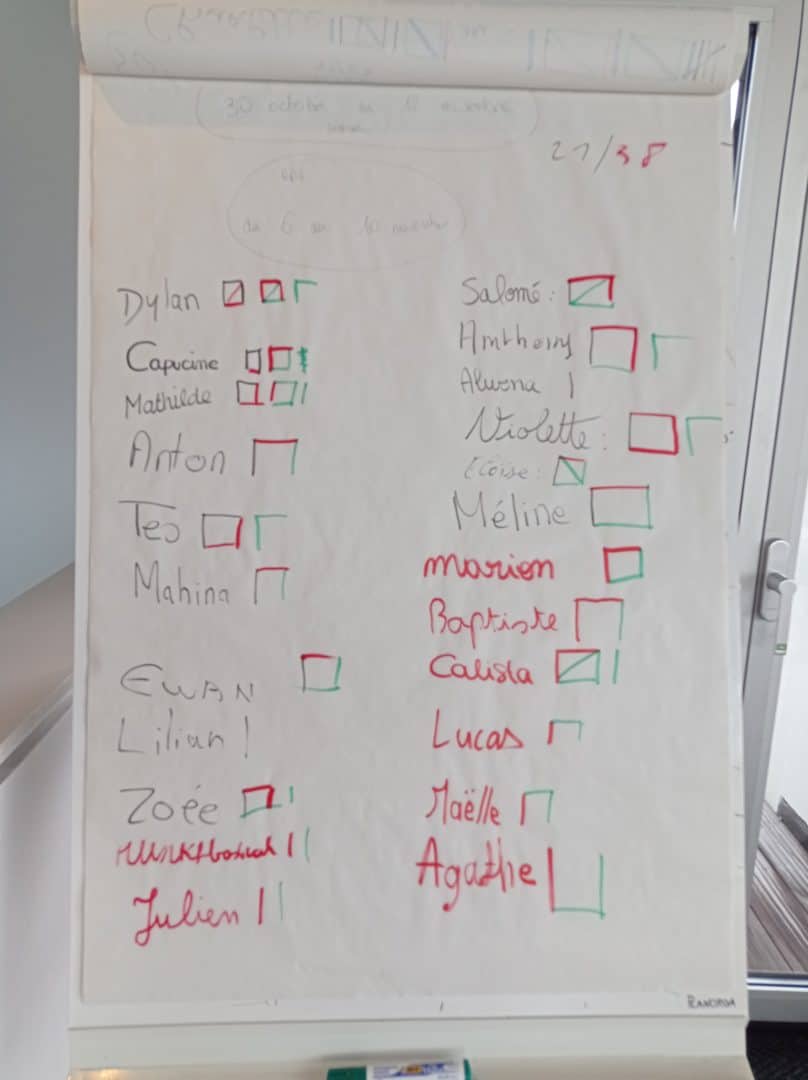 30 octobre au
21/38
du 6 au 10 novembre
Dylan
Capucine
Mathilde
Anton
Téo
Mahina
EWAN
Lilian
Zoée
Julien
Salomé :
Anthony
Alwena
Violette :
Eloïse :
Méline
Marion
Baptiste
Calista
Lucas
Maëlle
Agathe